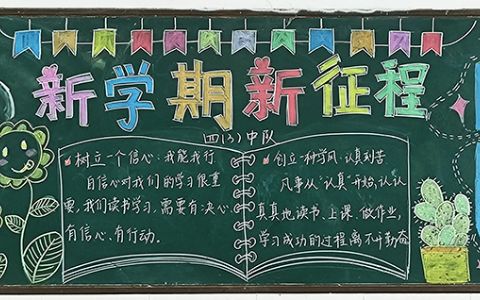 新学期新征程
四(3)中队
树立一个信心:我能我行
自信心对我们的学习很重
要,我们读书学习,需要有决心
有信心、有行动。
创立一种学风:认真刻苦
凡事从“认真”开始,认认
真真地读书、上课、做作业,
学习成功的过程离不开勤奋